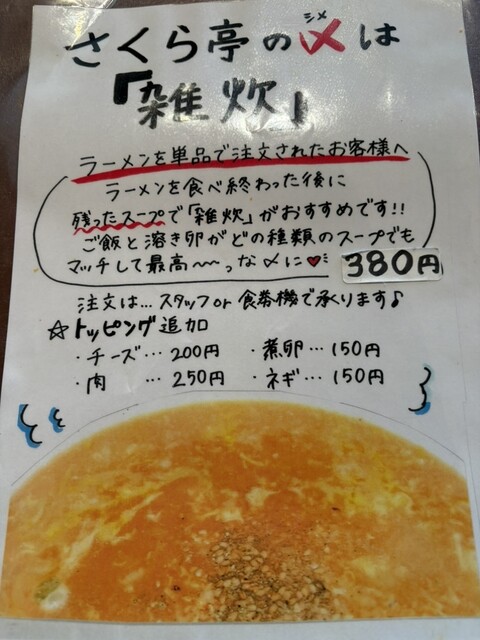 さくら亭の〆は
シメ
「雑炊」
ラーメンを単品で注文されたお客様へ
ラーメンを食べ終わった後に
残ったスープで「雑炊」がおすすめです!!
ご飯と溶き卵がどの種類のスープでも
マッチして最高〜〜っな〆に♥
380円
注文は… スタッフor食券機で承ります♪
☆トッピング追加
・チーズ… 200円 ・煮卵… 150円
・肉 … 250円 ・ネギ… 150円